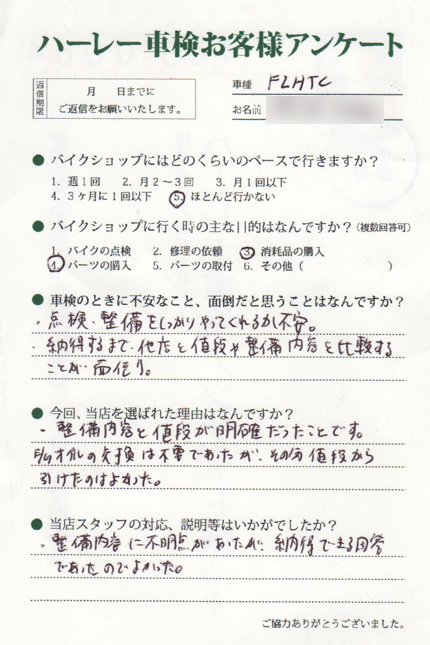 ハーレー車検お客様アンケート
返信期限
月 日までに
ご返信をお願いいたします。
車種 FLHTC
お名前
● バイクショップにはどのくらいのペースで行きますか？
1. 週1回 2. 月2～3回 3. 月1回以下
4. 3ヶ月に1回以下 5. ほとんど行かない
● バイクショップに行く時の主な目的はなんですか？(複数回答可)
1. バイクの点検 2. 修理の依頼 3. 消耗品の購入
4. パーツの購入 5. パーツの取付 6. その他( )
● 車検のときに不安なこと、面倒だと思うことはなんですか？
・点検、整備をしっかりやってくれるか不安。
・納得するまで他店と値段や整備内容を比較する
ことが面倒。
● 今回、当店を選ばれた理由はなんですか？
・整備内容と値段が明確だったことです。
オイルの交換は不要であったが、その分値段から
引けたのはよかった。
● 当店スタッフの対応、説明等はいかがでしたか？
・整備内容に不明点があったが、納得できる回答
であったのでよかった。
ご協力ありがとうございました。